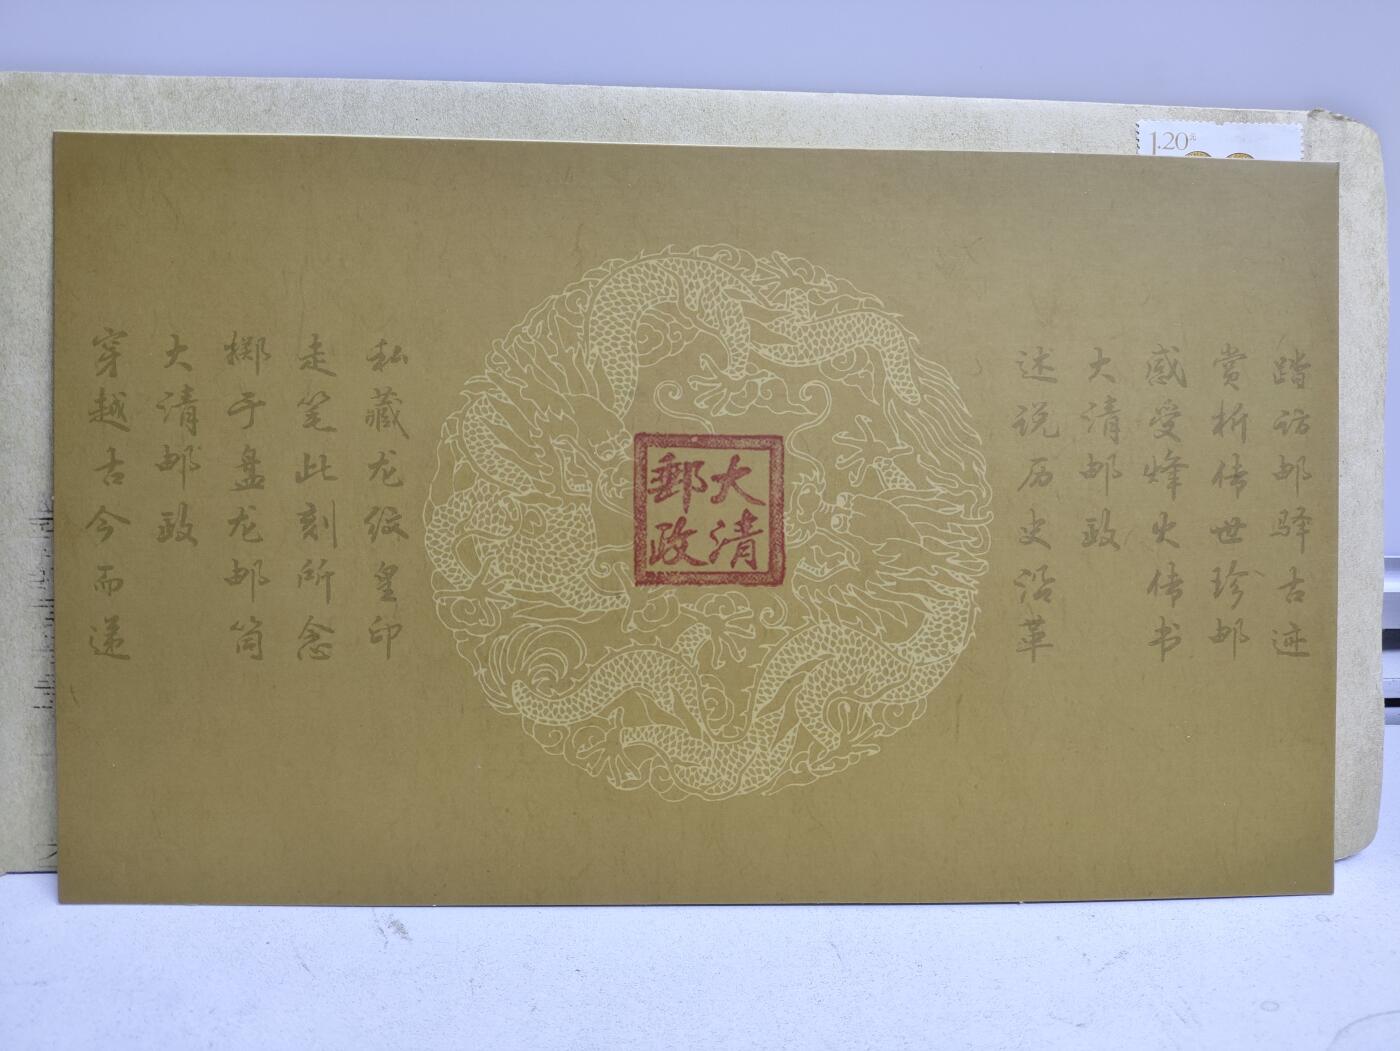 1.20元
踏访邮驿古迹
赏析传世珍邮
感受烽火传书
大清邮政
述说历史沿革
大清
郵政
私藏龙纹皇印
走笔此刻所念
掷于盘龙邮筒
大清邮政
穿越古今而递